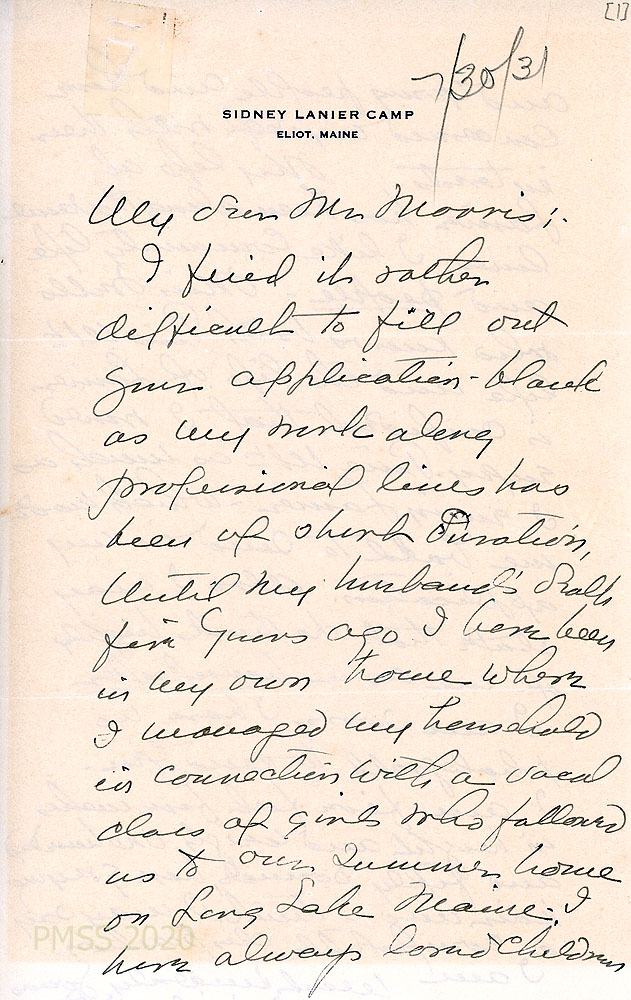 [1]
7/30/31
SIDNEY LANIER CAMP
ELIOT, MAINE
My dear Mr Morris;-
I find it rather
difficult to fill out
your application-blank
as my work along
professional lines has
been of short duration,
Until my husband's death
five years ago I have been
in my own home where
I managed my household
in connection with a vocal
class of girls who followed
us to our Summer home
on Long Lake Maine. I
have always loved children
PMSS 2020